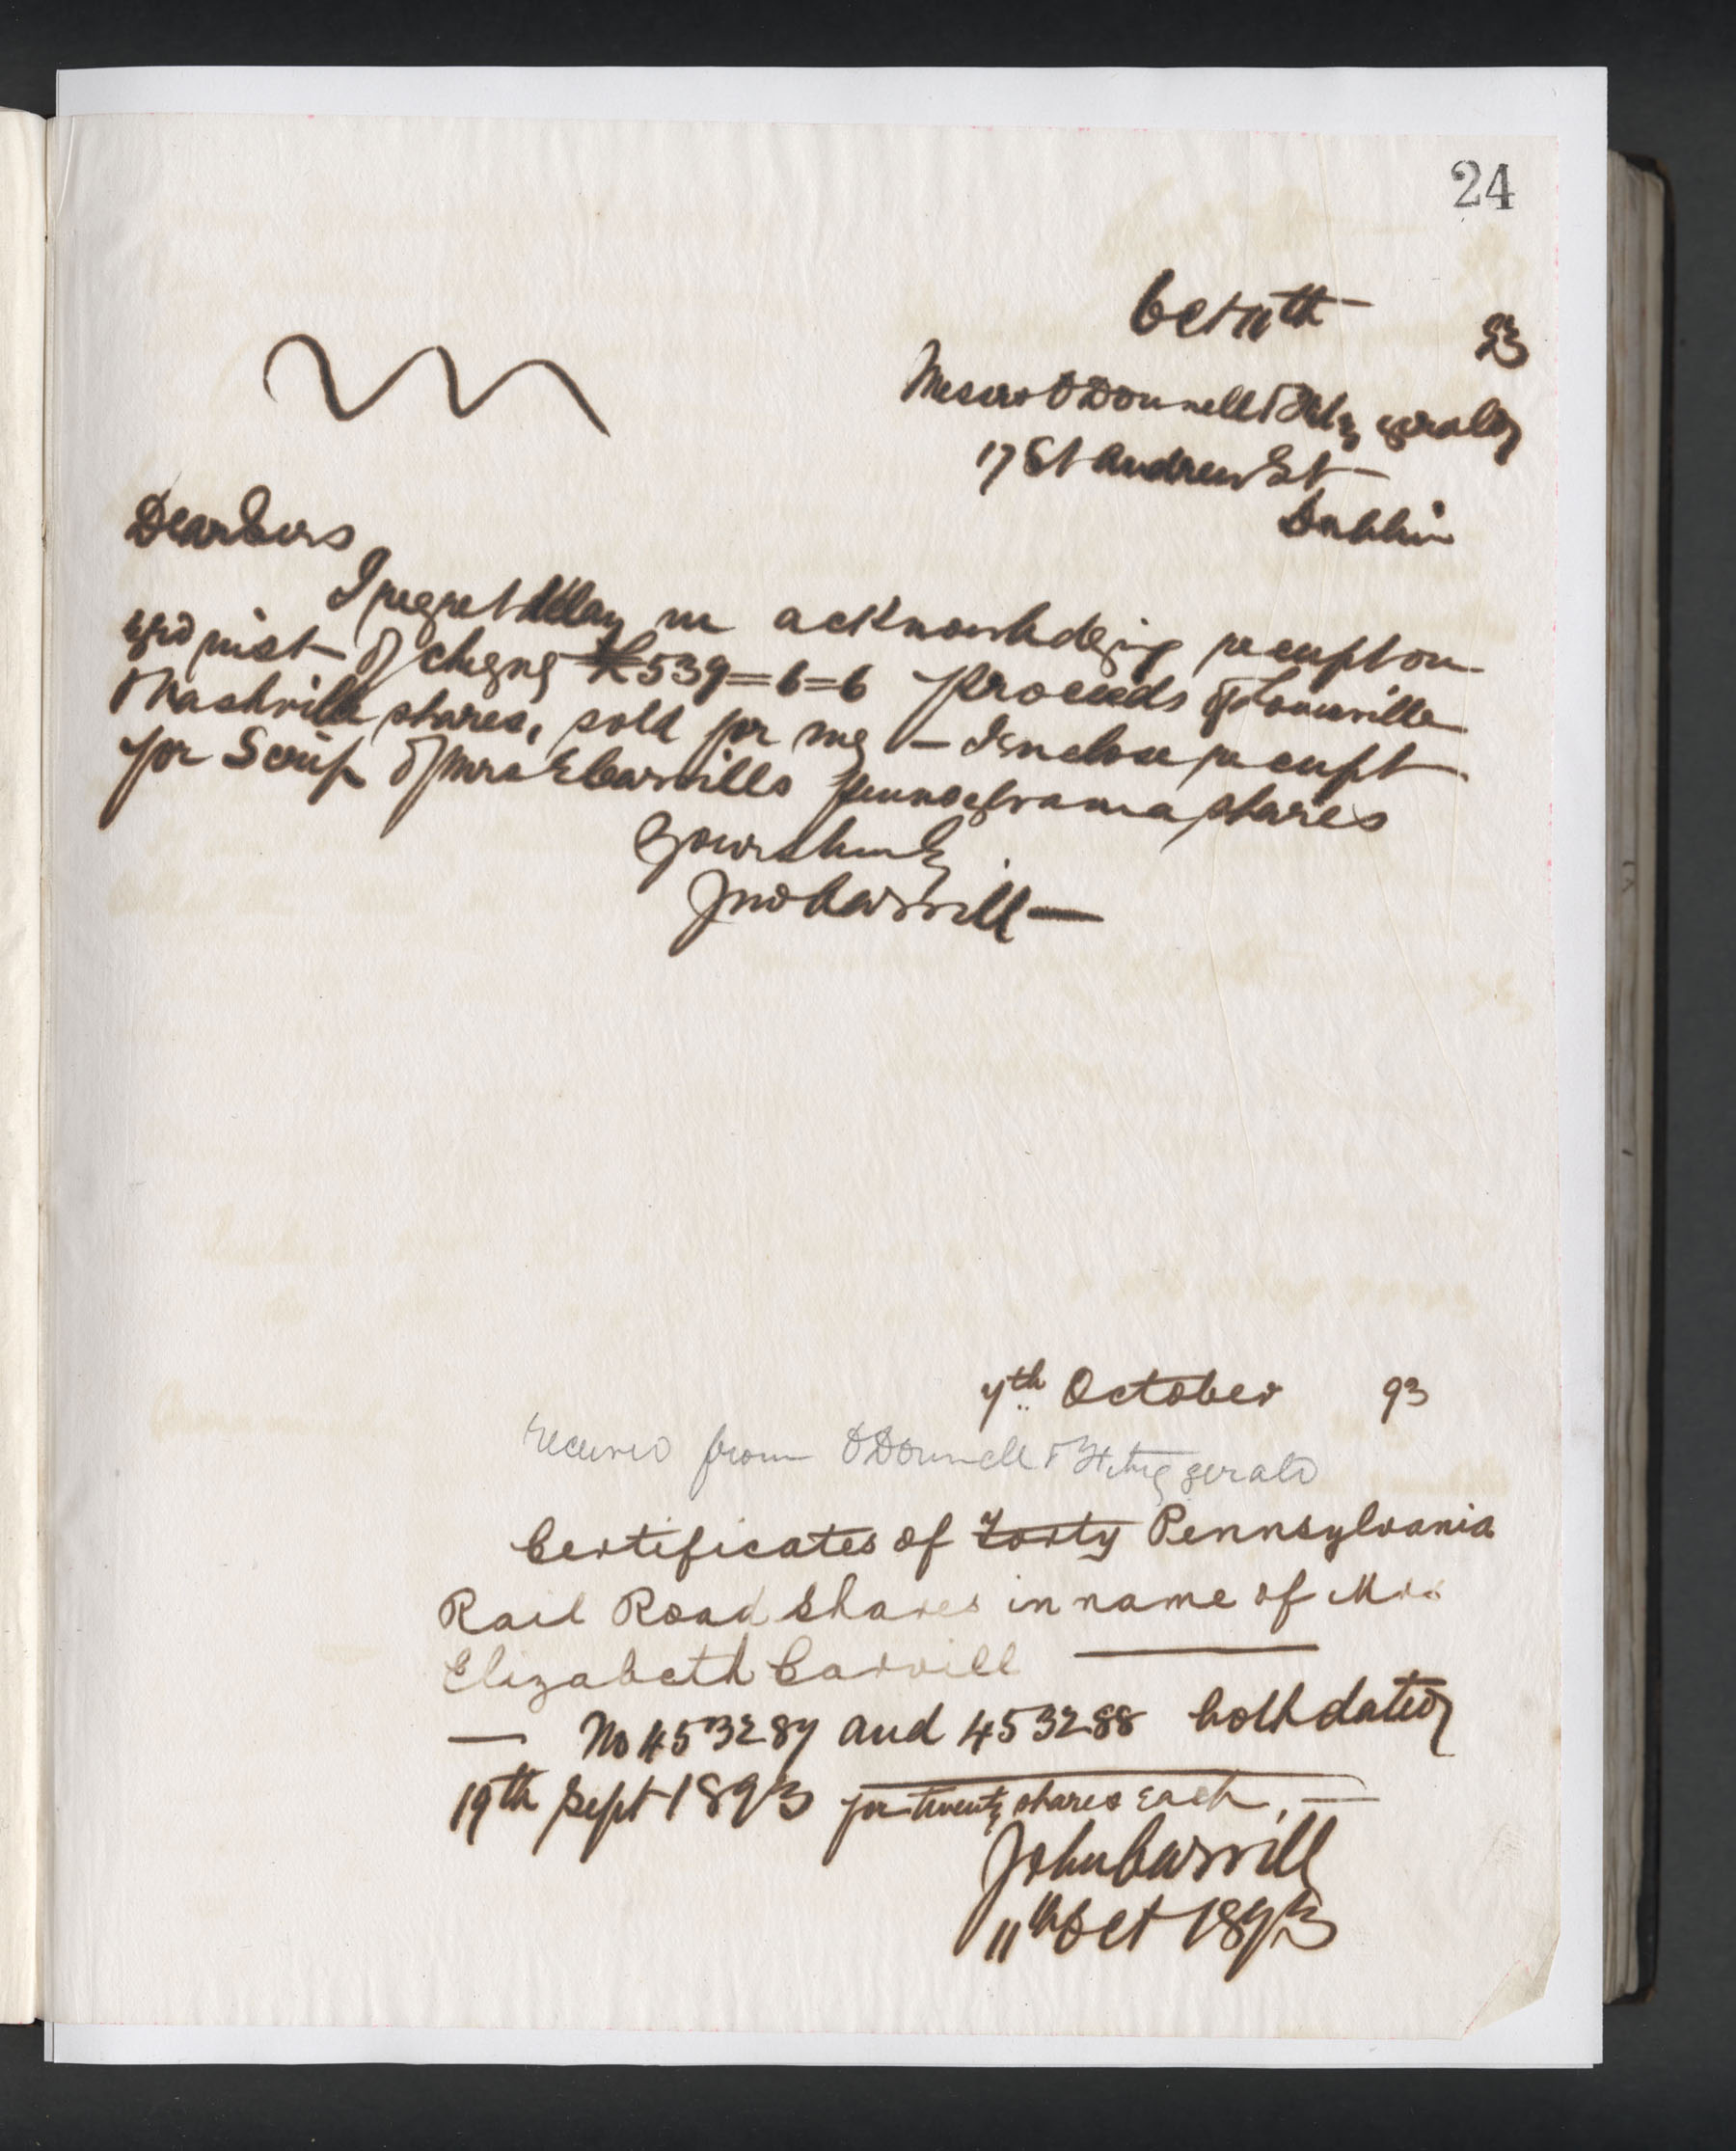 24
Oct 11th 93
Messrs O'Donnell & Fitzgerald
17 St Andrew St
Dublin
Dear Sirs
I regret delay in acknowledging receipt on
inst of cheque £539=6=6 proceeds of Louisville
& Nashville shares, sold for me — I enclose receipt
for Scrip of Mrs E Carvills Pennsylvania shares
Yours truly
Jno Carvill —
7th October 93
Received from O'Donnell & Fitzgerald
Certificates of Forty Pennsylvania
Rail Road Shares in name of Mrs
Elizabeth Carvill —
— No 453287 and 453288 both dated
19th Sept 1893 for twenty shares each, —
John Carvill
11th Oct 1893